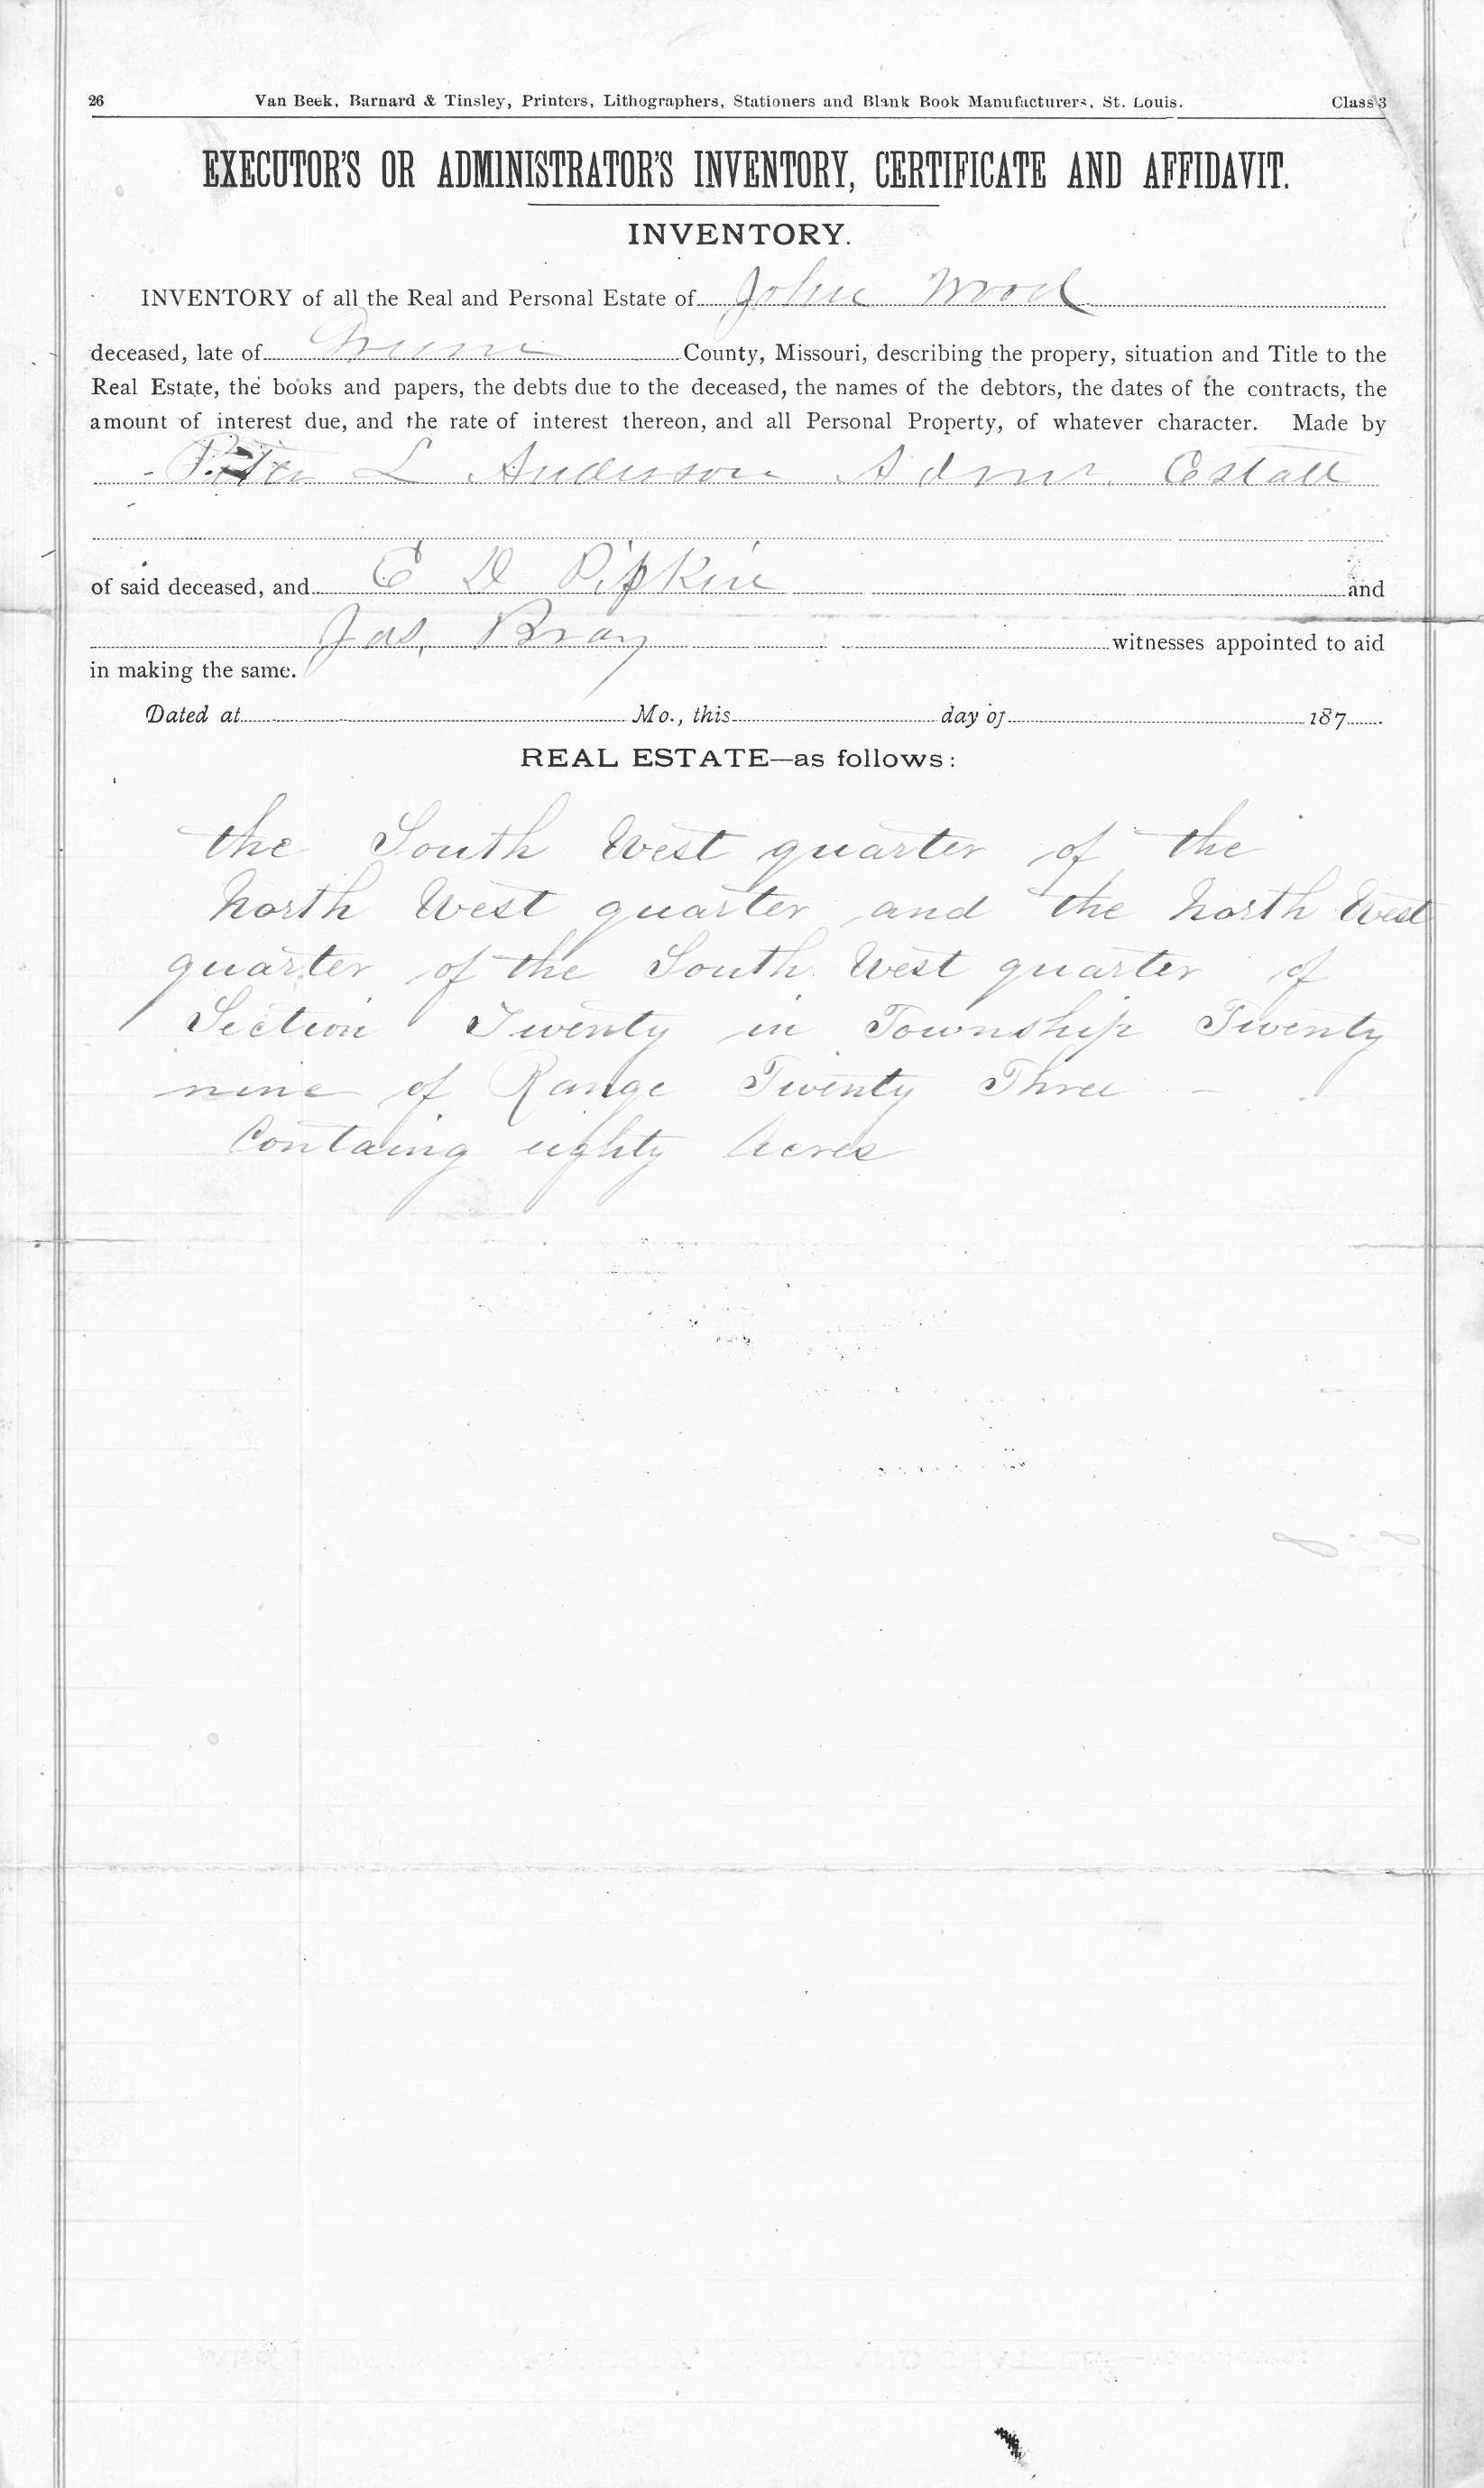 26 Van Beek, Barnard & Tinsley, Printers, Lithographers, Stationers and Blank Book Manufacturers, St. Louis. Class 3
EXECUTOR'S OR ADMINISTRATOR'S INVENTORY, CERTIFICATE AND AFFIDAVIT.
INVENTORY.
INVENTORY of all the Real and Personal Estate of John Wood
deceased, late of Greene County, Missouri, describing the propery, situation and Title to the
Real Estate, the books and papers, the debts due to the deceased, the names of the debtors, the dates of the contracts, the
amount of interest due, and the rate of interest thereon, and all Personal Property, of whatever character. Made by
Peter L Anderson Admr. Estate
of said deceased, and E D Pipkin and
Jas, Bray witnesses appointed to aid
in making the same.
Dated at Mo., this day of 187
REAL ESTATE—as follows:
the South West quarter of the
North West quarter and the North West
quarter of the South West quarter of
Section Twenty in Township Twenty
nine of Range Twenty Three —
Containg eighty Acres